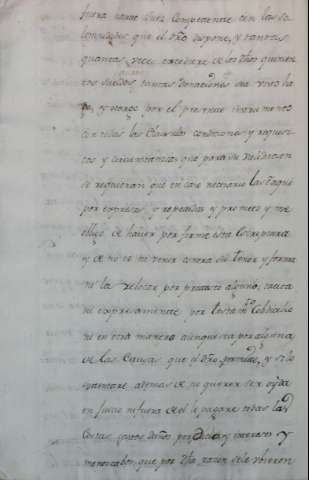 fuera nombe Juez Competente con las so
lemnidades que el dro dispone, y tantas
quantas veces excediere de los dhos quinien
tos sueldos tantas donaciones una vivos ha
go, y otorgo por el presente instrumento
con todas las Clausulas condiciones y requisi
tos y circunstancias que para su validacion
se requieran que en caso necesario las doy aqui
por expresas, y repetidas y prometo y me
obligo de haver por firme esta Escriptura
y de no ir ni venir contra su tenor y forma
ni la revocar por pretexto alguno, tacita
ni expresamente por testamto Cobdicilio
ni en otra manera aunque sea por alguna
de las Causas que el dro permite, y si lo
yntentare ademas de no querer ser oyda
en Juicio ni fuera de el pagare todas las
Costas gastos daños perdidas y intereses y
menoscabos que por dha razon se le sibieren